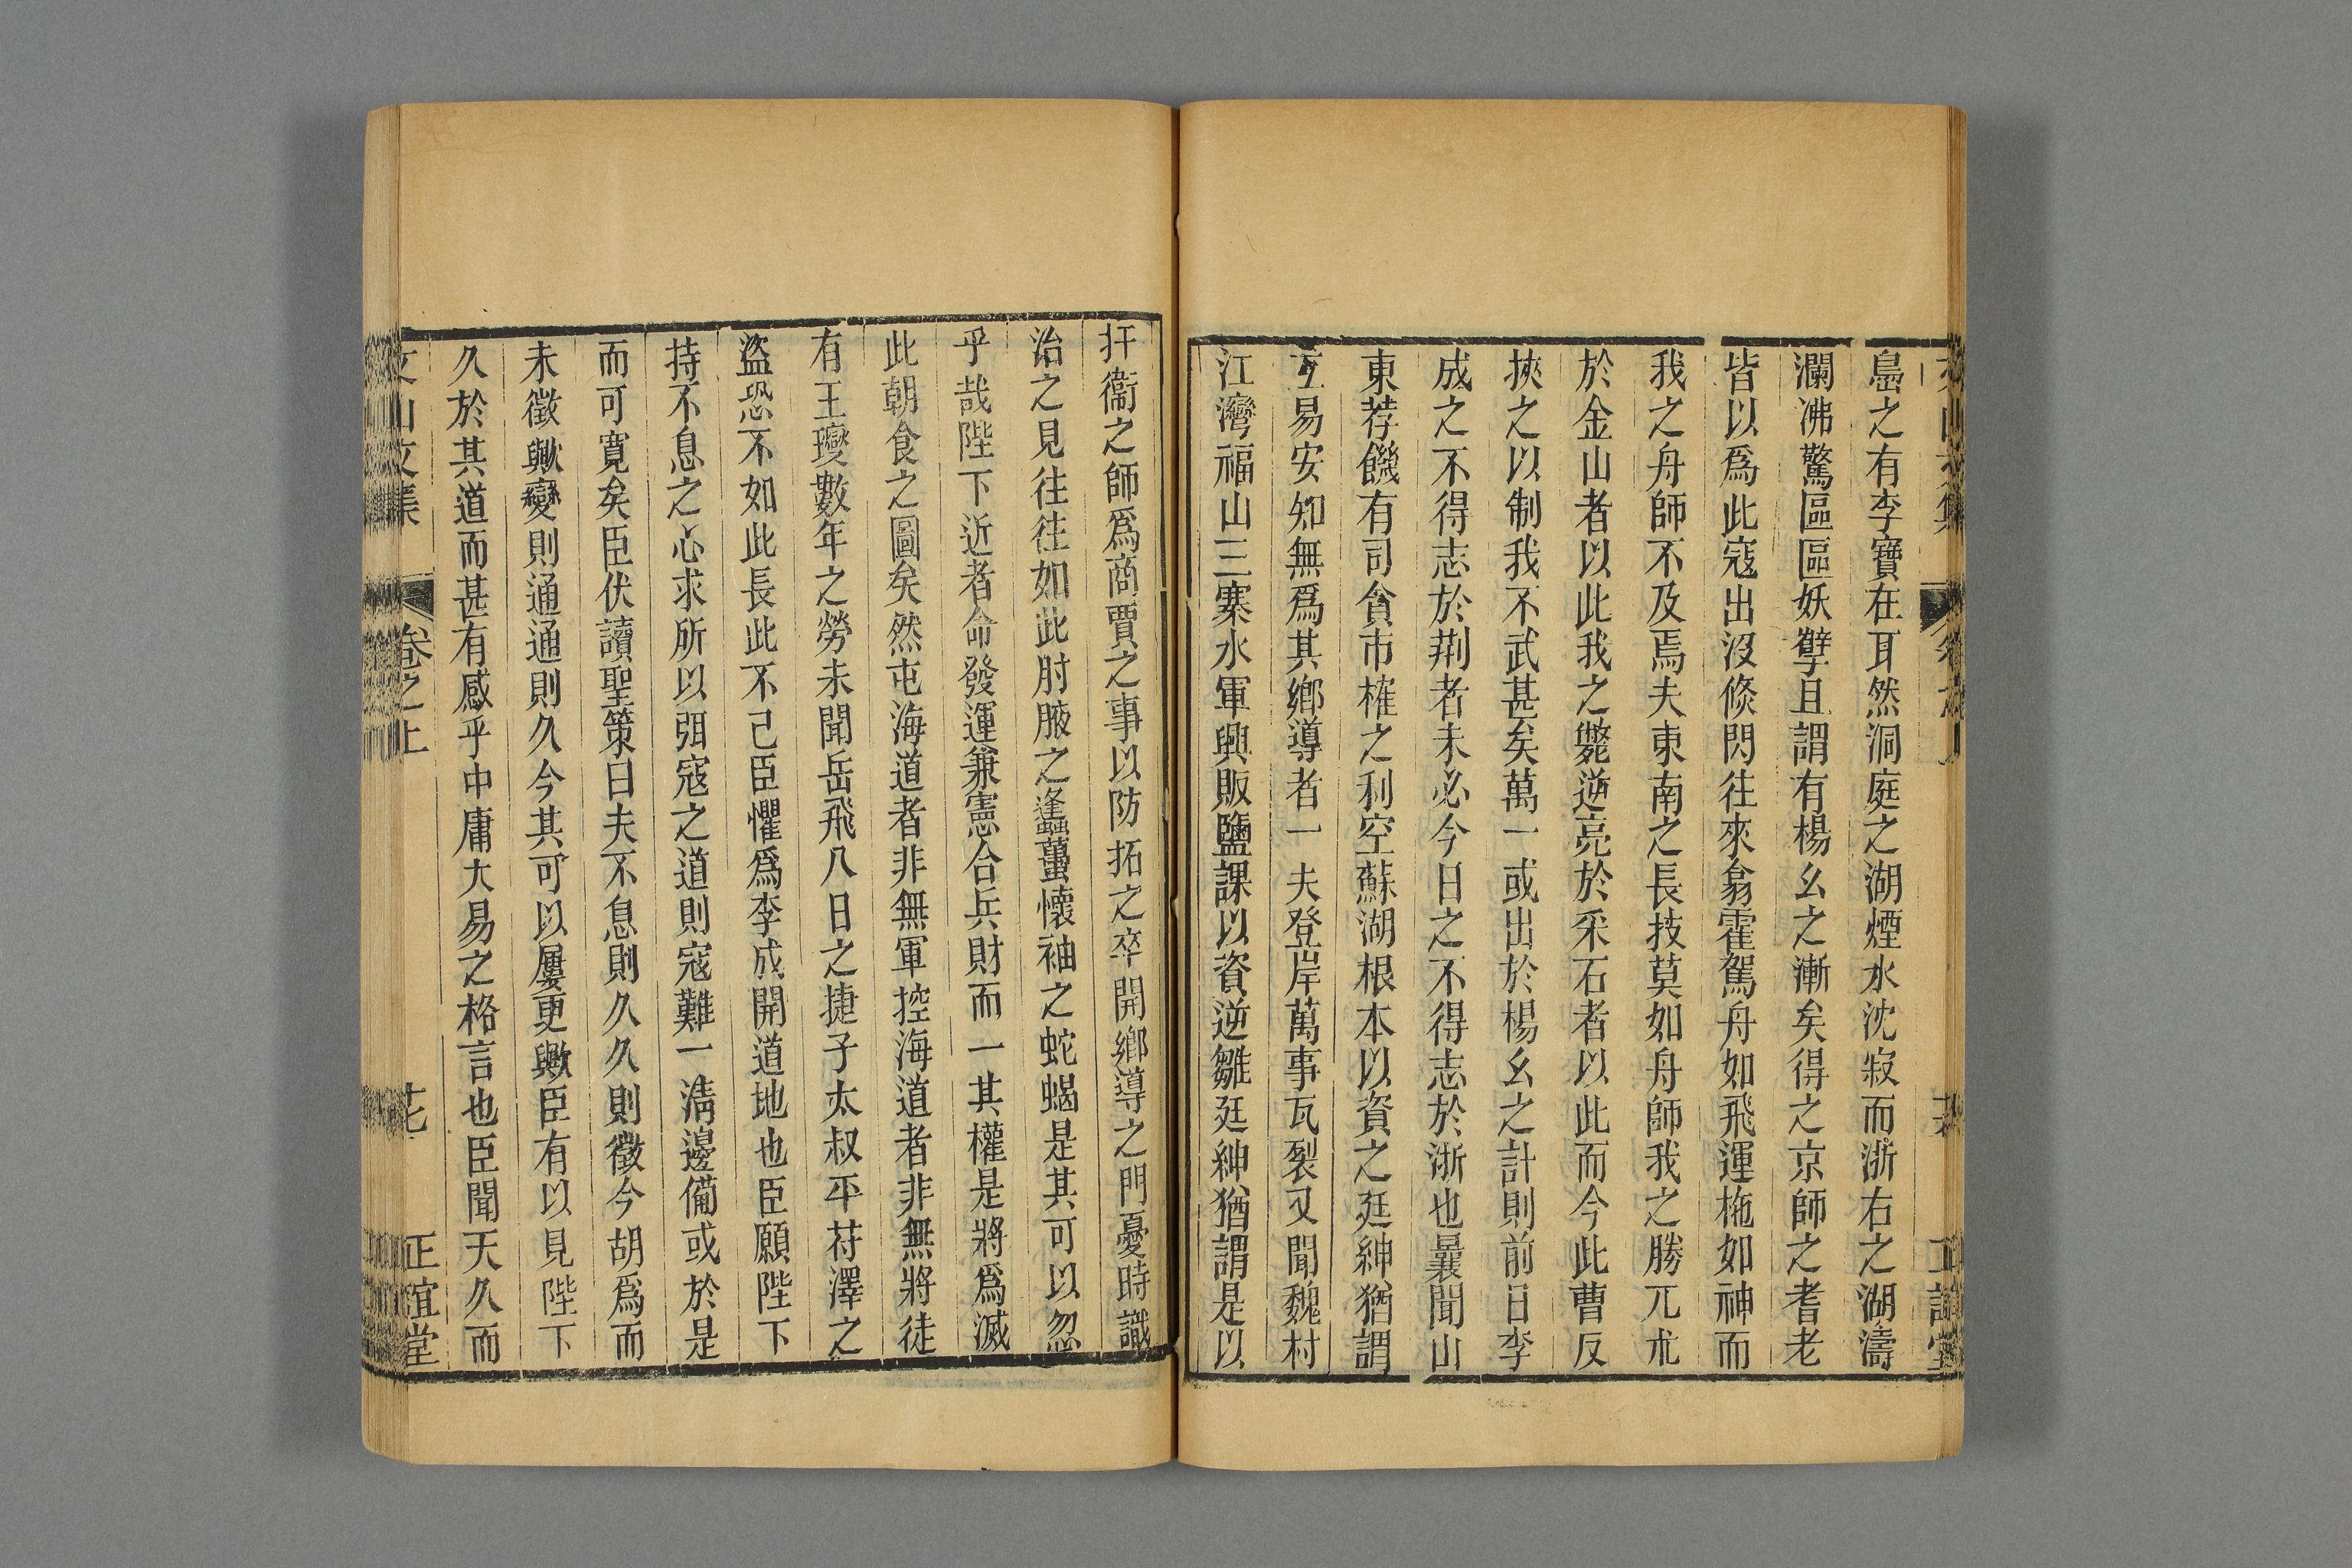 島之有李寶在耳然洞庭之湖煙水沈寂而浙右之湖濤
瀾沸驚區區妖孽且謂有楊幺之漸矣得之京師之耆老
皆以爲此寇出沒倏閃往來翕霍駕舟如飛運拖如神而
我之舟師不及焉夫東南之長技莫如舟師我之勝兀朮
於金山者以此我之斃逆亮於采石者以此而今此曹反
挾之以制我不武甚矣萬一或出於楊幺之計則前日李
成之不得志於荆者未必今日之不得志於浙也曩聞山
東荐饑有司貪市榷之利空蘇湖根本以資之廷紳猶謂
互易安知無爲其鄉導者一夫登岸萬事瓦裂又聞魏村
江灣福山三寨水軍興販鹽課以資逆雛廷紳猶謂是以
扞衞之師爲商賈之事以防拓之卒開鄉導之門憂時識
治之見往往如此肘腋之蠭蠆懷袖之蛇蝎是其可以忽
乎哉陛下近者命發運兼憲合兵財而一其權是將爲滅
此朝食之圖矣然屯海道者非無軍控海道者非無將徒
有王㻛數年之勞未聞岳飛八日之捷子太叔平苻澤之
盜恐不如此長此不已臣懼爲李成開道地也臣願陛下
持不息之心求所以弭寇之道則寇難一淸邊備或於是
而可寬矣臣伏讀聖策曰夫不息則久久則徵今胡爲而
未徵歟變則通通則久今其可以屢更歟臣有以見陛下
久於其道而甚有感乎中庸大易之格言也臣聞天久而
文山文集
卷之上
正誼堂